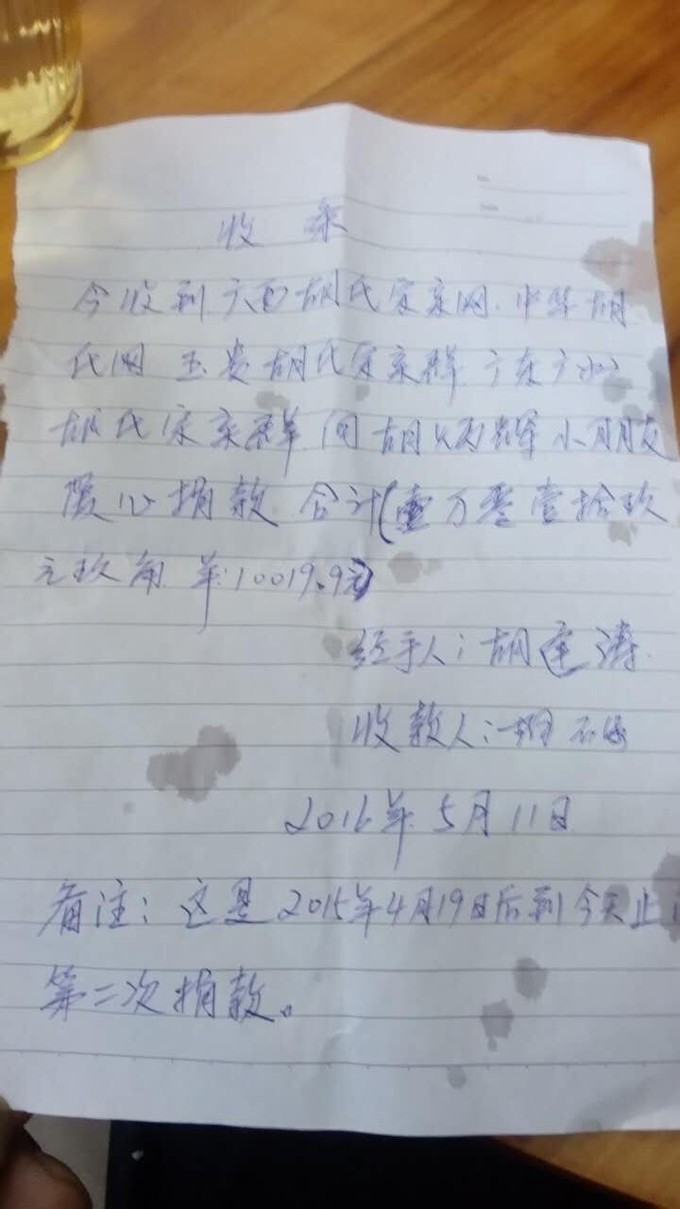 收 条
今收到广西胡氏宗亲网.中华胡
氏网 玉贵胡氏宗亲群 广东
胡氏宗亲群 向胡 辉小朋友
暖心捐款 合计(壹万零壹拾玖
元玖角 羊:10019.9元)
经手人:胡建涛
收款人:胡
2016年5月11日
备注:这是2015年4月19日后到今天止
第二次捐款。